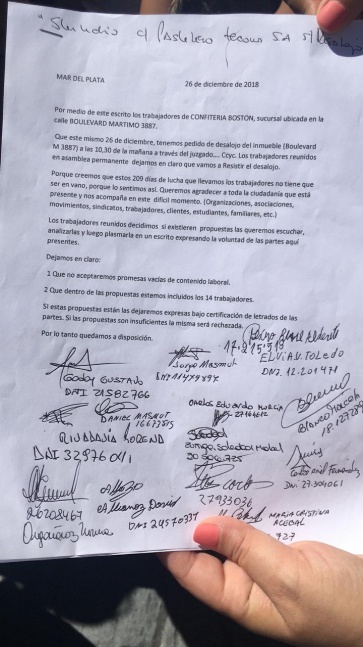 MAR DEL PLATA
26 de diciembre de 2018
Por medio de este escrito los trabajadores de CONFITERIA BOSTON, sucursal ubicada en la
calle BOULEVARD MARTIMO 3887.
Que este mismo 26 de diciembre, tenemos pedido de desalojo del inmueble (Boulevard
M 3887) a las 10,30 de la mañana a través del juzgado.... Ccyc. Los trabajadores reunidos
en asamblea permanente dejamos en claro que vamos a Resistir el desalojo.
Porque creemos que estos 209 días de lucha que llevamos los trabajadores no tiene que
ser en vano, porque lo sentimos así. Queremos agradecer a toda la ciudadanía que está
presente y nos acompaña en este difícil momento. (Organizaciones, asociaciones,
movimientos, sindicatos, trabajadores, clientes, estudiantes, familiares, etc.)
Los trabajadores reunidos decidimos si existieren propuestas las queremos escuchar,
analizarlas y luego plasmarla en un escrito expresando la voluntad de las partes aquí
presentes.
Dejamos en claro:
1 Que no aceptaremos promesas vacías de contenido laboral.
2 Que dentro de las propuestas estemos incluidos los 14 trabajadores.
Si estas propuestas están las dejaremos expresas bajo certificación de letrados de las
partes. Si las propuestas son insuficientes la misma será rechazada.
Por lo tanto quedamos a disposición.
ELVIA V. TOLEDO
DNI. 12.201.471
Jorge Masmut
GODOY GUSTAVO
DNI 21582766
CARLOS Eduardo MURCIA
DANIEL MASMUT
16677815
DNI 32976011
Soledad
30506725
DNI 27.304061
26208467
DNI 24570337
27933036
MARIA CRISTINA
ACEBAL